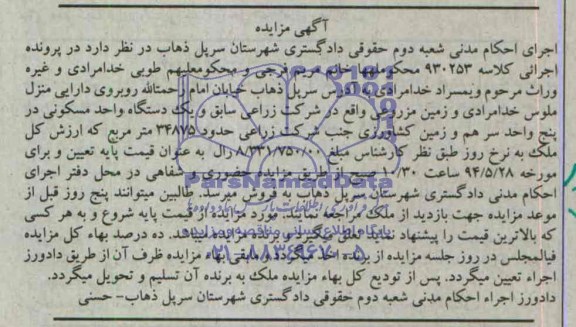 آگهی مزایده
اجرای احکام مدنی شعبه دوم حقوقی دادگستری شهرستان سرپل ذهاب در نظر دارد در پرونده
اجرائی کلاسه ۹۳۰۲۵۳ محکوم‌لها خانم مریم فرجی و محکوم‌علیهم طوبی خدامرادی و غیره
وراث مرحوم ویمسراد خدامرادی به آدرس سرپل ذهاب خیابان امام رحمت‌الله روبروی دارایی منزل
ملوس خدامرادی و زمین مزروعی واقع در شرکت زراعی سابق و یک دستگاه واحد مسکونی در
پنج واحد سر هم و زمین کشاورزی جنب شرکت زراعی حدود ۳۴۸۷۵ متر مربع که ارزش کل
ملک به نرخ روز طبق نظر کارشناس مبلغ ۸/۳۳۱/۷۵۰/۰۰۰ ریال به عنوان قیمت پایه تعیین و برای
مورخه ۹۴/۵/۲۸ ساعت ۱۰/۳۰ صبح از طریق مزایده حضوری و شفاهی در محل دفتر اجرای
احکام مدنی دادگستری شهرستان سرپل ذهاب به فروش میرسد. طالبین میتوانند پنج روز قبل از
موعد مزایده جهت بازدید از ملک مراجعه نمایند. مورد مزایده از قیمت پایه شروع و به هر کسی
که بالاترین قیمت را پیشنهاد نماید تعلق میگیرد و برنده مزایده میباشد. ده درصد بهاء کل مزایده
فی‌المجلس در روز جلسه مزایده از برنده اخذ میگردد و مابقی بهاء مزایده ظرف آن از طریق دادورز
اجراء تعیین میگردد. پس از تودیع کل بهاء مزایده ملک به برنده آن تسلیم و تحویل میگردد.
دادورز اجراء احکام مدنی شعبه دوم حقوقی دادگستری شهرستان سرپل ذهاب- حسنی
ParsNamadData
۰۲۱-۸۸۳۴۹۶۷۰-۵